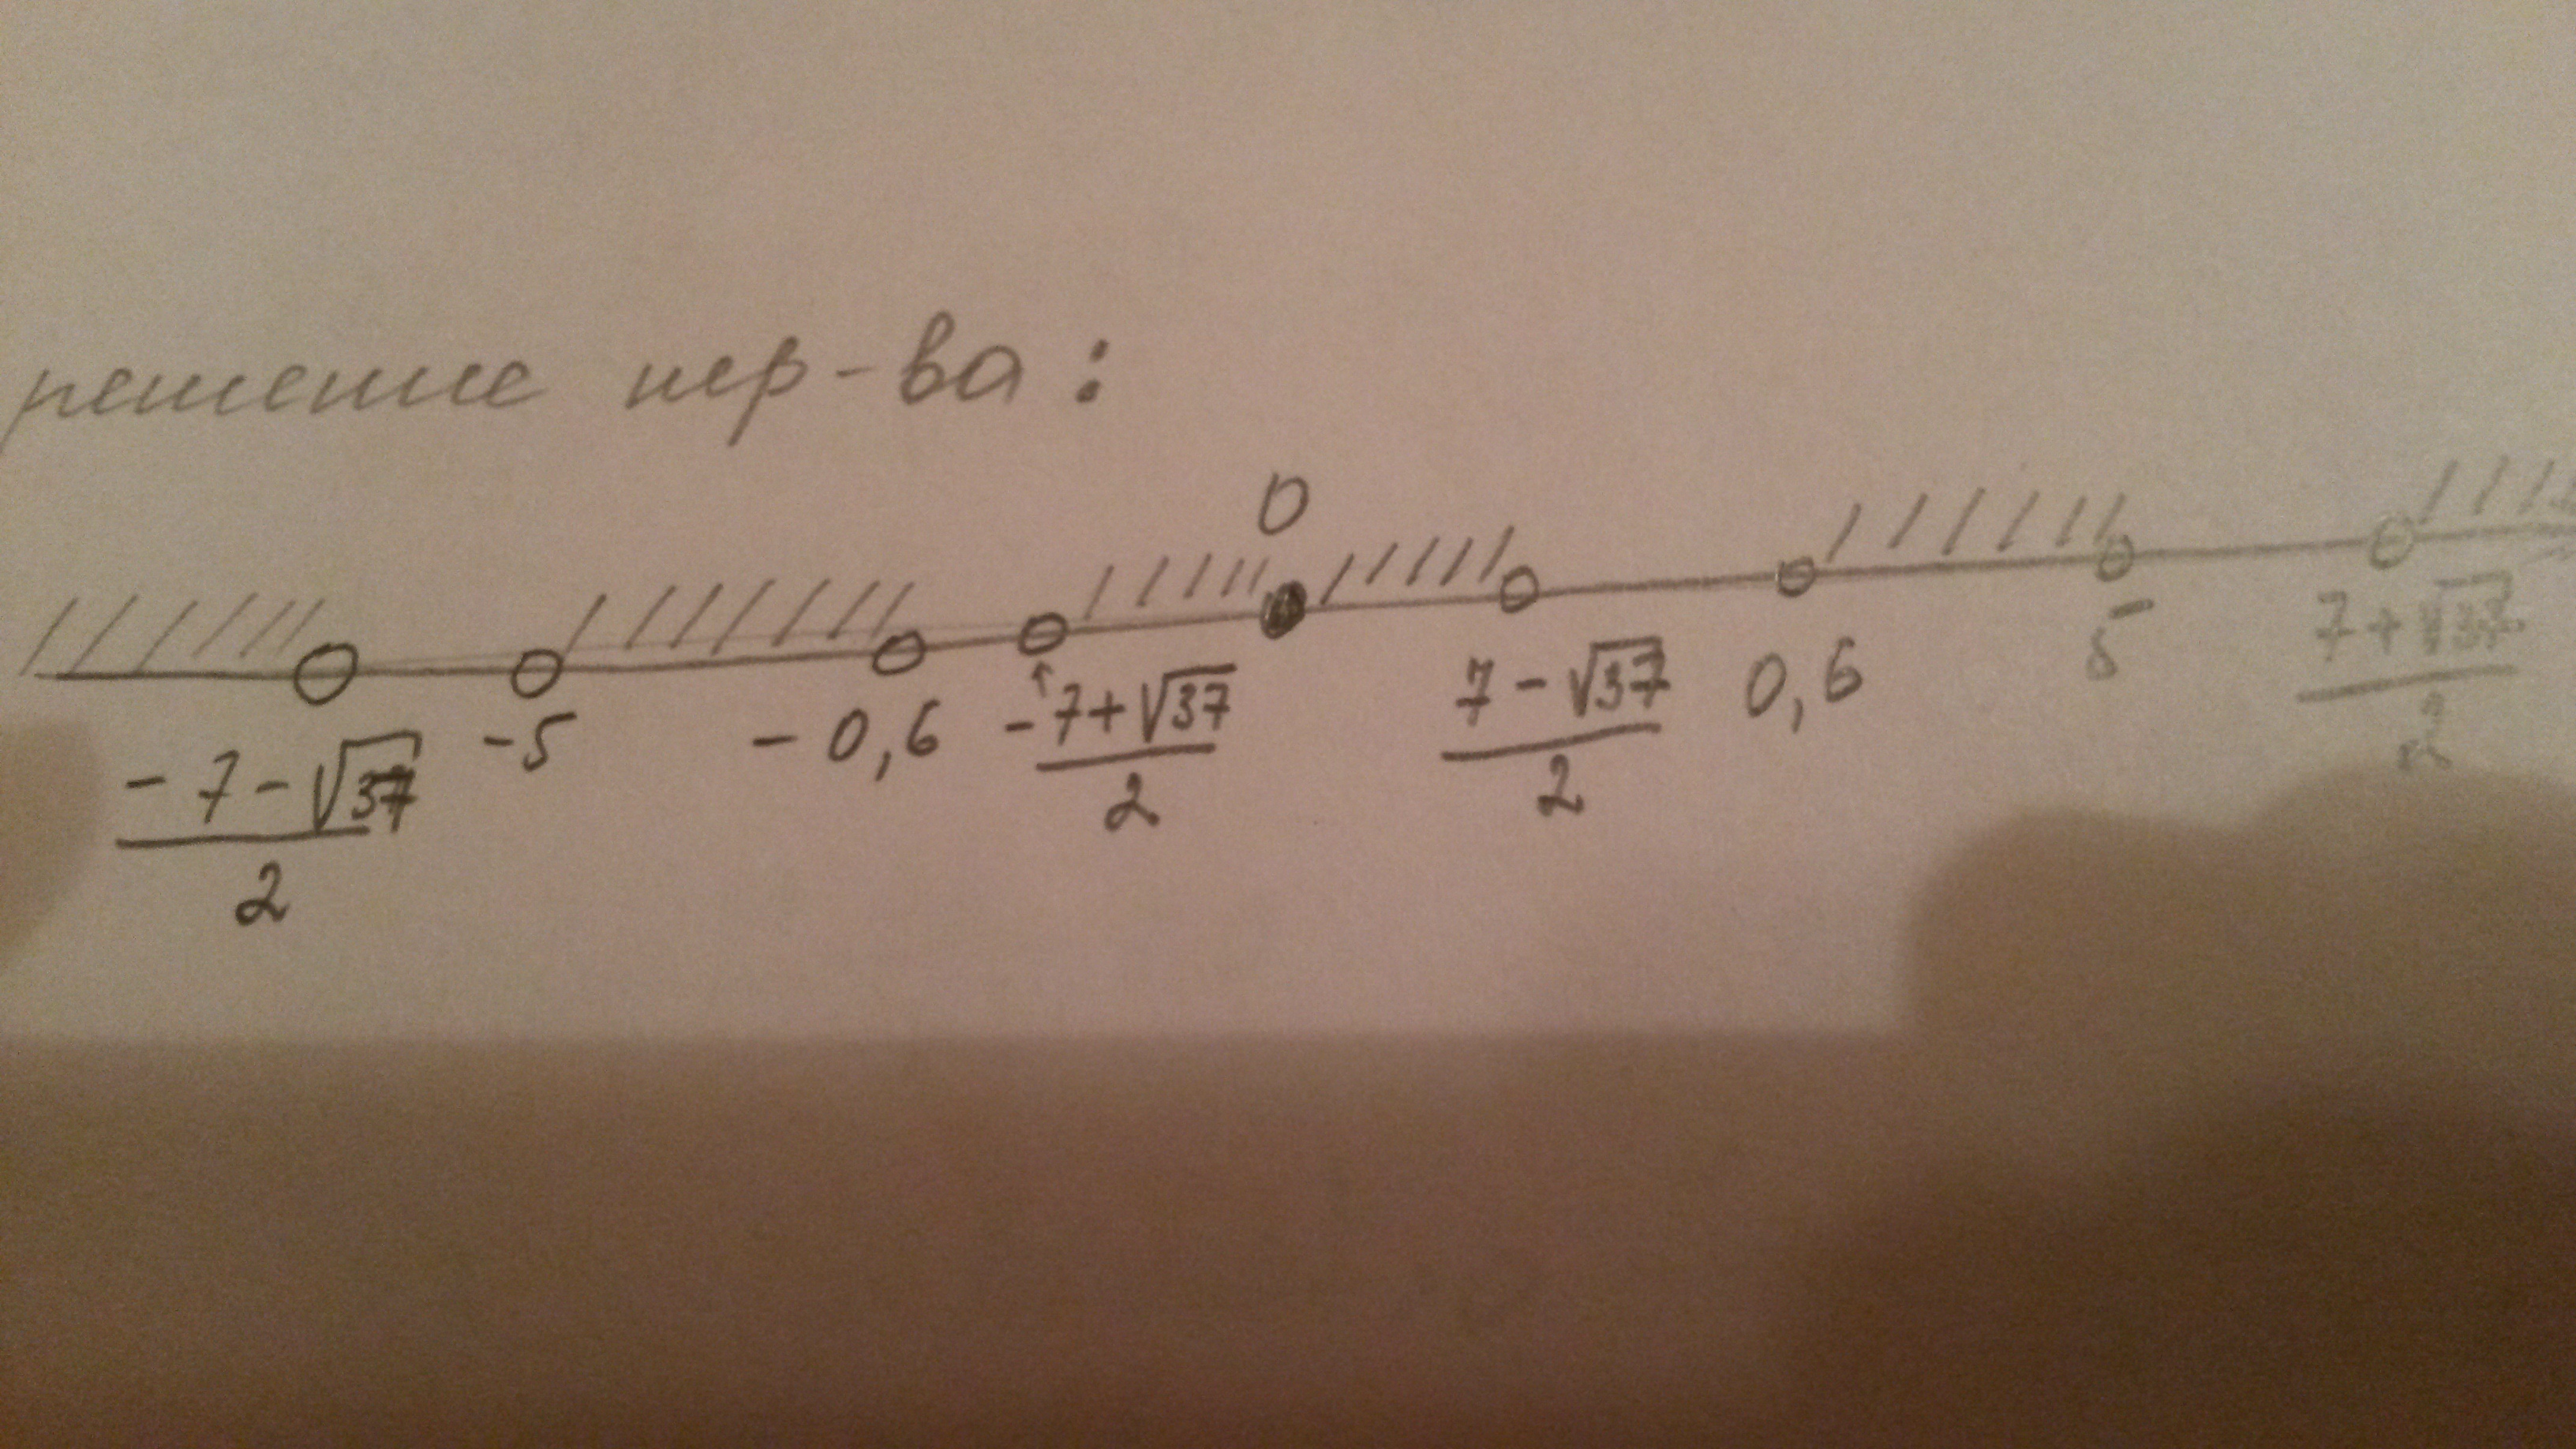 решение нер-ва:
0
(-7-√37)/2 -5 -0,6 (-7+√37)/2 (7-√37)/2 0,6 5 (7+√37)/2